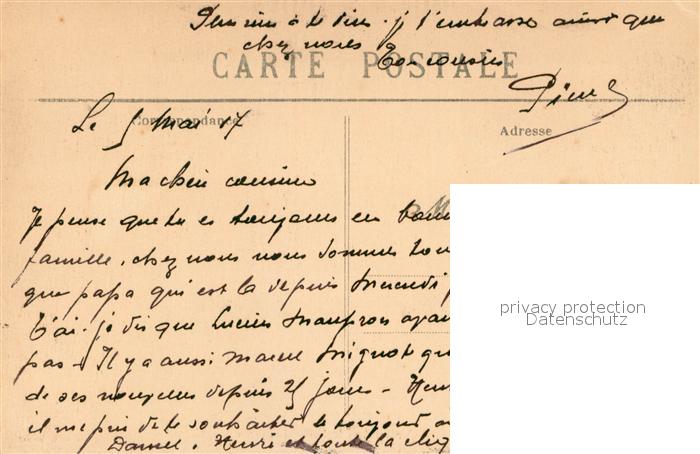 Plus rien à te dire. je t'embrasse ainsi que
chez nous Ton cousin
CARTE POSTALE
Pierre
Correspondance
Le 5 Mai 17
Adresse
Ma chère cousine
Je pense que tu es toujours en bonne
famille. chez nous nous sommes tous
que papa qui est là depuis Mercredi
T'ai-je dis que Lucien
pas - Il y a aussi Marcel Mignot
de ses nouvelles depuis 25 jours -
il me prie de te souhaiter le toujours
Daniel. Henri et toute la
privacy protection
Datenschutz